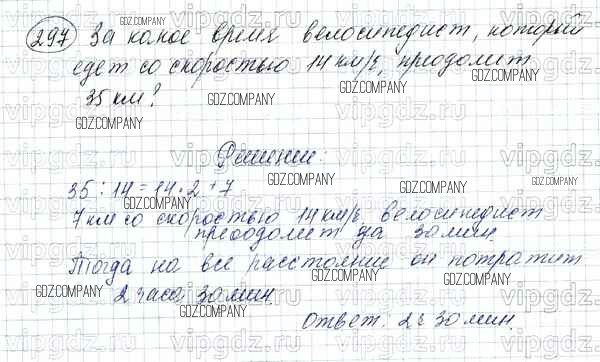 297 За какое время велосипедист, который
едет со скоростью 14 км/ч, преодолит
35 км?
Решение:
35 : 14 = 14 · 2 + 7
7 км со скоростью 14 км/ч велосипедист
преодолит за 30 мин.
Тогда на все расстояние он потратит
2 часа 30 мин.
Ответ. 2 ч 30 мин.
GDZ.COMPANY
vipgdz.ru